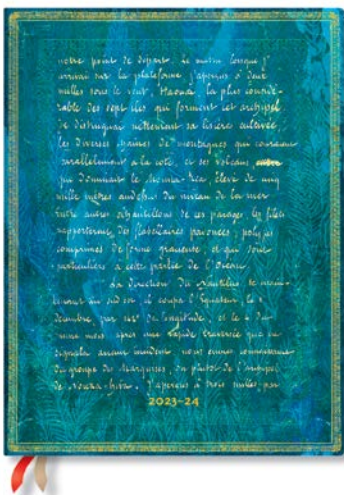 notre point de départ. Le matin lorsque j'
arrivai sur la plateforme j'aperçus à deux
milles sous le vent, Haouai, la plus considé-
rable des sept îles qui forment cet archipel
Je distinguai nettement sa lisière cultivée,
les diverses chaînes de montagnes qui couraient
parallèlement à la côte, et ses volcans
que dominait le Mouna-Rea élevé de cinq
mille mètres au dessus du niveau de la mer
entre autres échantillons de ces parages, les filets
rapportèrent des flabellaires pavonées, polypes
comprimés de forme gracieuse, et qui sont
particuliers à cette partie de l'Océan.
La direction du Nautilus se main-
au sud est il coupa l'Équateur, le 1
décembre, par de longitude, et le 4 du
même mois après une rapide traversée que ne
signala aucun incident, nous eûmes connaissance
du groupe des Marquises, ou plutôt de l'archipel
de Nouka-Hiva. J'aperçus à trois milles par
2023-24